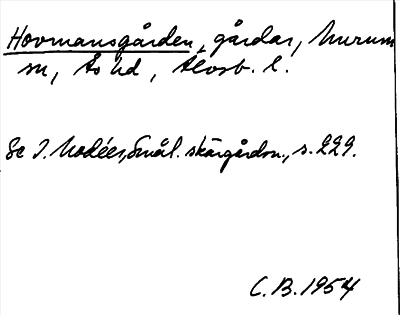 Hovmansgården, gårdar, Murum
sn, Ås hd, Älvsb. l.
Se I. Modéer, Smål. skärgårdsn., s. 229.
C.B. 1954